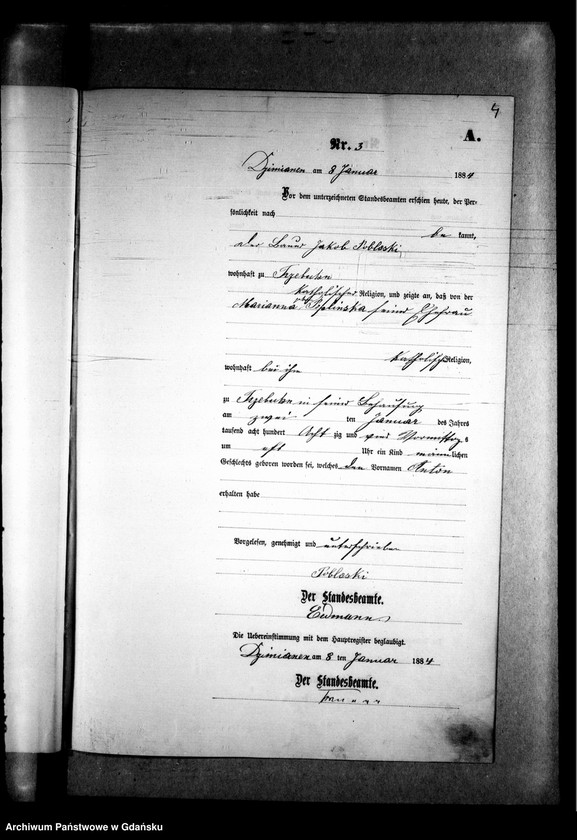 4
A.
Nr. 3
Dzimianen am 8 Januar 1884
Vor dem unterzeichneten Standesbeamten erschien heute, der Per-
sönlichkeit nach
be kannt,
der Bauer Jakob Pobloski
wohnhaft zu Trzebuhn
katholischer Religion, und zeigte an, daß von der
Marianna seiner Ehefrau
katholischer Religion,
wohnhaft bei ihm
zu Trzebuhn in seiner Behausung
am zwei ten Januar des Jahres
tausend acht hundert Acht zig und vier Vormittags
um elf Uhr ein Kind männlichen
Geschlechts geboren worden sei, welches den Vornamen Anton
erhalten habe
Vorgelesen, genehmigt und unterschrieben
Pobloski
Der Standesbeamte.
Erdmann
Die Uebereinstimmung mit dem Hauptregister beglaubigt.
Dzimianen am 8 ten Januar 1884
Der Standesbeamte.
Archiwum Państwowe w Gdańsku